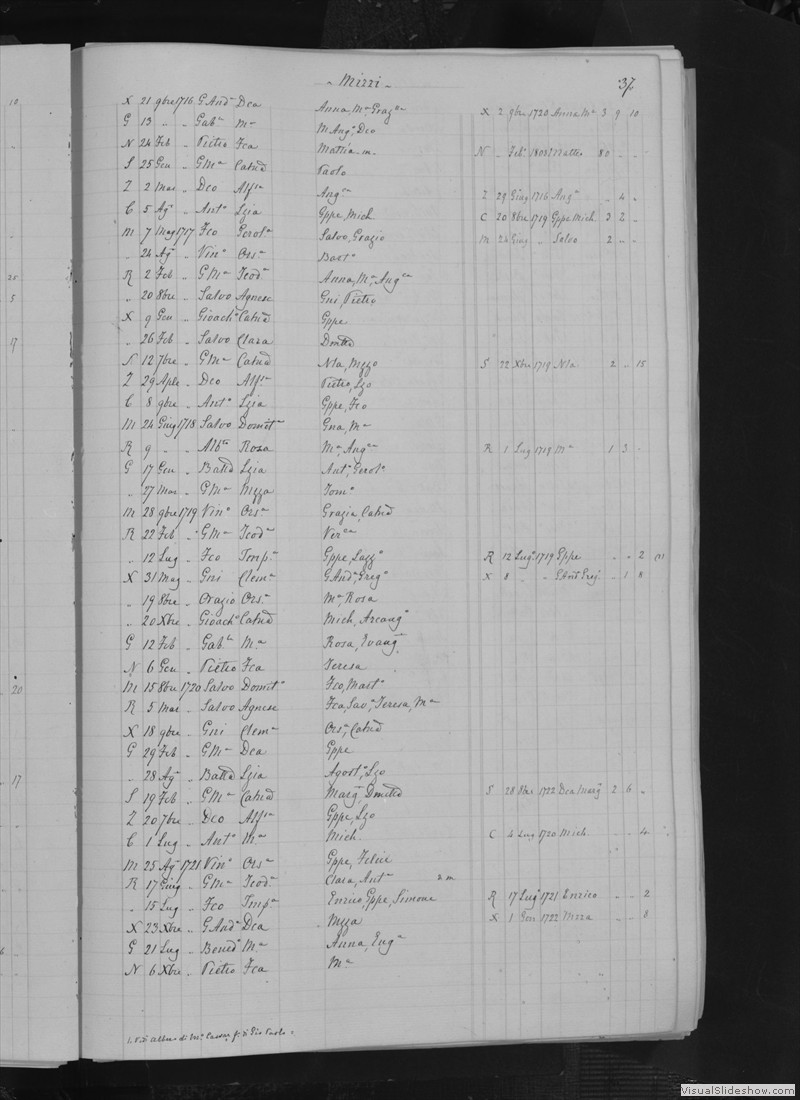 Mizzi 37
10
X 21 9bre 1716 G And.a Dea Anna, M.a Graz.a X 2 9bre 1720 Anna M.a 3 9 10
G 13 " " Gab.la M.a M Ang.o, Deo
N 24 Feb " Pietro Fca Mattia N " Feb.o 1808 Matteo 80 " "
S 25 Gen " G M.a Catnd Paolo
Z 2 Mar " Deo Alf.sa Ang.ca Z 29 Giug 1716 Ang.a " 4 "
C 5 Ag.o " Ant.o Lzia Gppe, Mich C 20 8bre 1719 Gppe Mich 3 2 "
M 7 Mag 1717 Fco Gerol.a Salvo, Grazio M 24 Giug " Salvo 2 " "
" 24 Ag.o " Vin.o Ors.a Bart.o
25 R 2 Feb " G M.a Teod.a Anna, M.a, Ang.ca
5 " 20 8bre " Salvo Agnese Gni, Pietro
X 9 Gen " Gioach.o Catnd Gppe
17 " 26 Feb " Salvo Clara Dmtlo
S 12 7bre " G M.a Catnd Nla, Mzzo S 22 Xbre 1719 Nla 2 " 15
Z 29 Aple " Deo Alf.sa Pietro, Lzo
C 8 9bre " Ant.o Lzia Gppe, Fco
M 24 Giug 1718 Salvo Domit.a Gna, M.a
R 9 " " Alb.ta Rosa M.a, Ang.ca R 1 Lug 1718 M.a 1 3 "
G 17 Gen " Batta Lzia Ant.o, Gerol.o
" 27 Mar " G M.a Mzza Tom.o
M 28 9bre 1719 Vin.o Ors.a Grazia, Catnd
R 22 Feb " G M.a Teod.a Ver.ca
" 12 Lug " Fco Tmp.a Gppe, Lazz.o R 12 Lug.o 1719 Gppe " " 2 (1)
X 31 Mag " Gni Clem.a G And.a, Greg.o X 8 " " Greg. " 1 8
" 19 8bre " Orazio Ors.a M.a, Rosa
" 20 Xbre " Gioach.o Catnd Mich, Arcang.o
G 12 Feb " Gab.le M.a Rosa, Evang.
N 6 Gen " Pietro Fca Teresa
20 M 15 8bre 1720 Salvo Domit.a Fco, Mart.o
R 5 Mar " Salvo Agnese Fca, Sav.a, Teresa, M.a
X 18 9bre " Gni Clem.a Ors.a, Catnd
G 29 Feb " G M.a Dea Gppe
17 " 28 Ag.o " Batta Lzia Agost.o, Lzo
S 19 Feb " G M.a Catnd Marg.a, Dmtlo S 28 Mar 1722 Dea Marg.a 2 6 "
Z 20 7bre " Deo Alf.sa Gppe, Lzo
C 1 Lug " Ant.o M.a Mich. C 4 Lug 1720 Mich. " " 4
M 25 Ag.o 1721 Vin.o Ors.a Gppe, Felice
R 17 Giug " G M.a Teod.a Clara, Ant.a 2 m
" 15 Lug " Fco Tmp.a Enrico, Gppe, Simone R 17 Lug.o 1721 Enrico " " 2
X 23 Xbre " G And.a Dea Mzza X 1 Gen 1722 Mzza " " 8
6 G 21 Lug " Bened.o M.a Anna, Eug.a
N 6 Xbre " Pietro Fca M.a
1. di M.a di Gio Paolo
VisualSlideshow.com